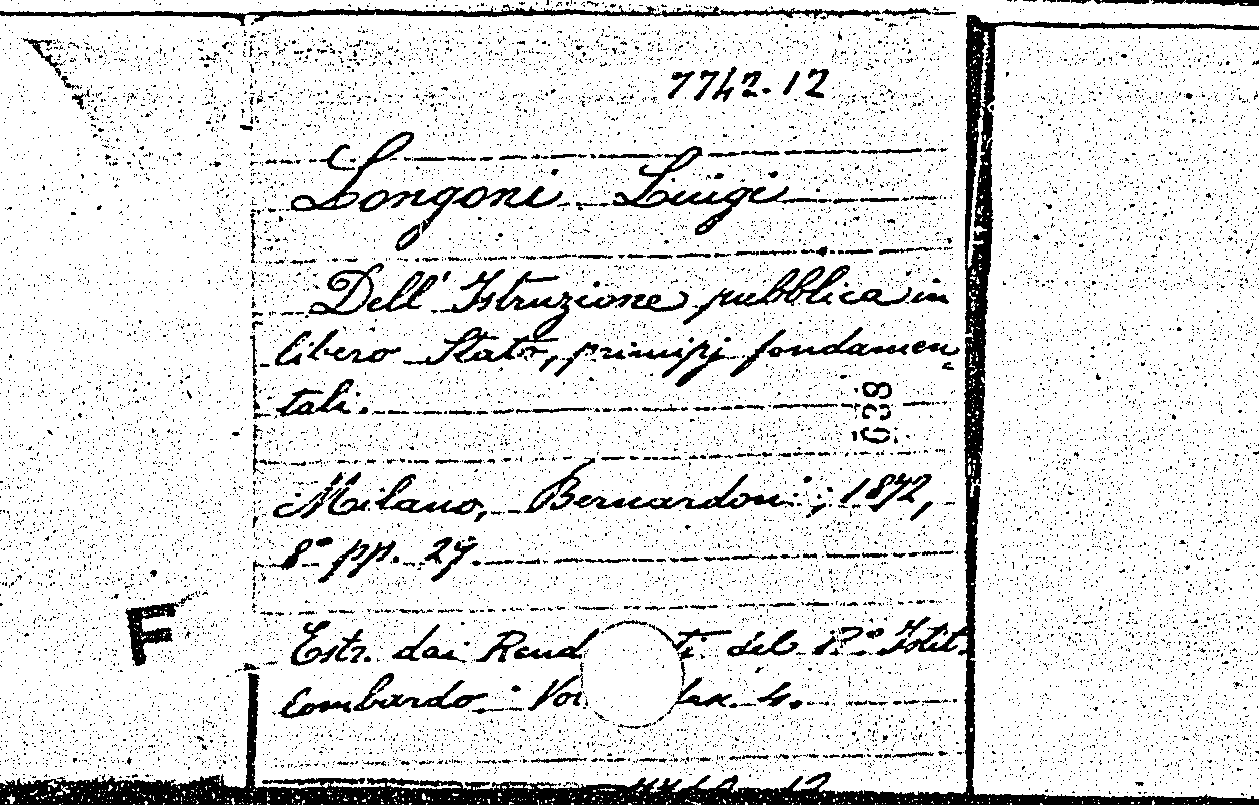 7742.12
Longoni Luigi
Dell' Istruzione pubblica in
libero Stato, principj fondamen
tali.
638
Milano, Bernardoni, 1872,
8° pp. 27.
F
Estr. dai Rend ti del R.° Istit.
Lombardo. Vol. 4.